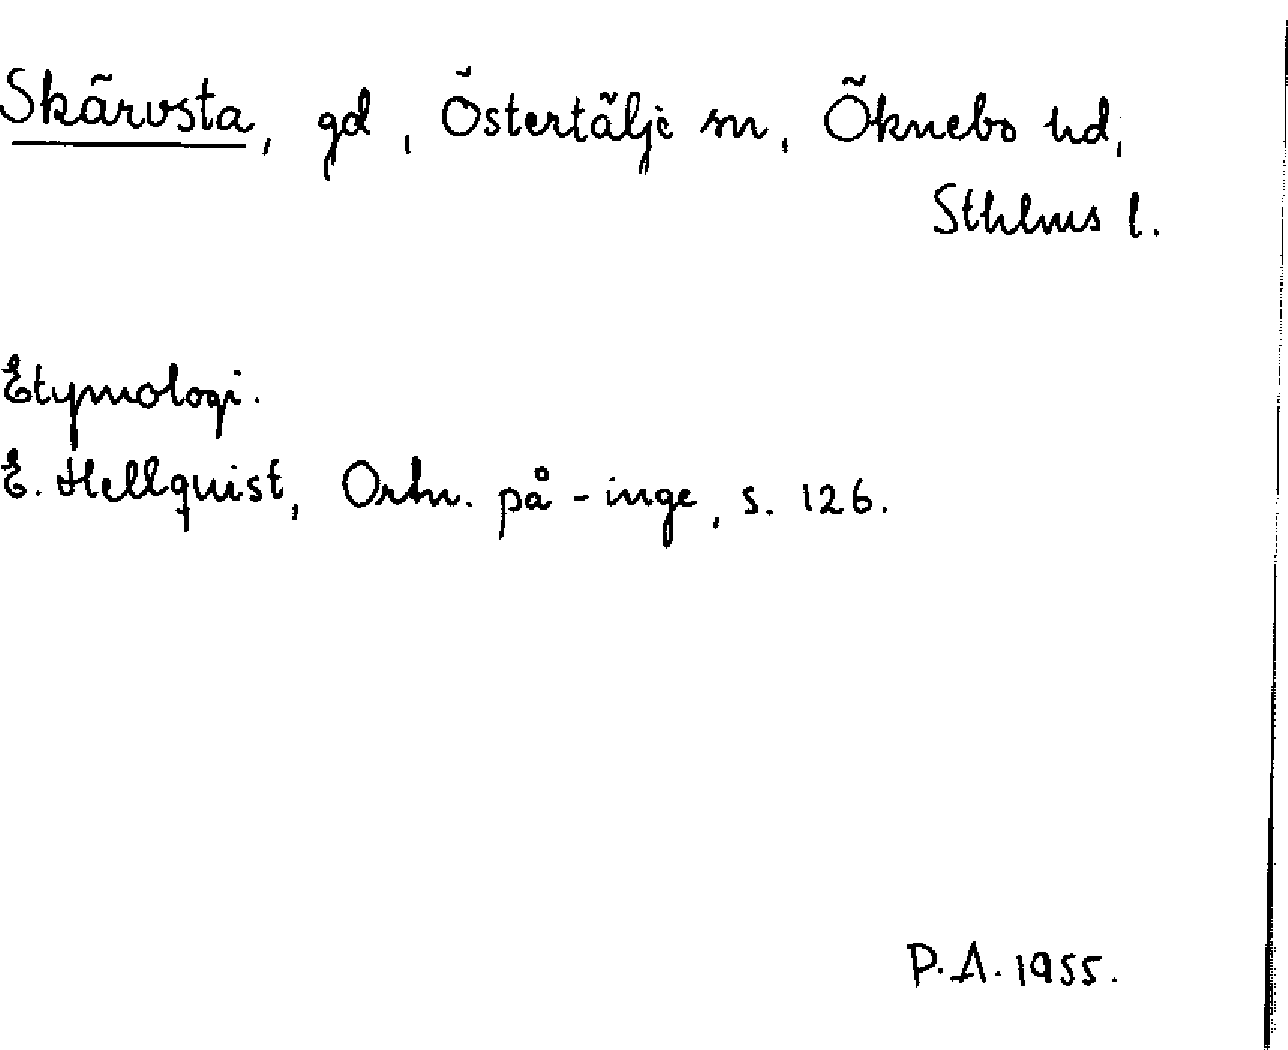 Skärvsta, gd, Östertälje sn, Öknebo hd,
Sthlms l.
Etymologi.
E. Hellquist, Ortn. på -inge, s. 126.
P.A. 1955.